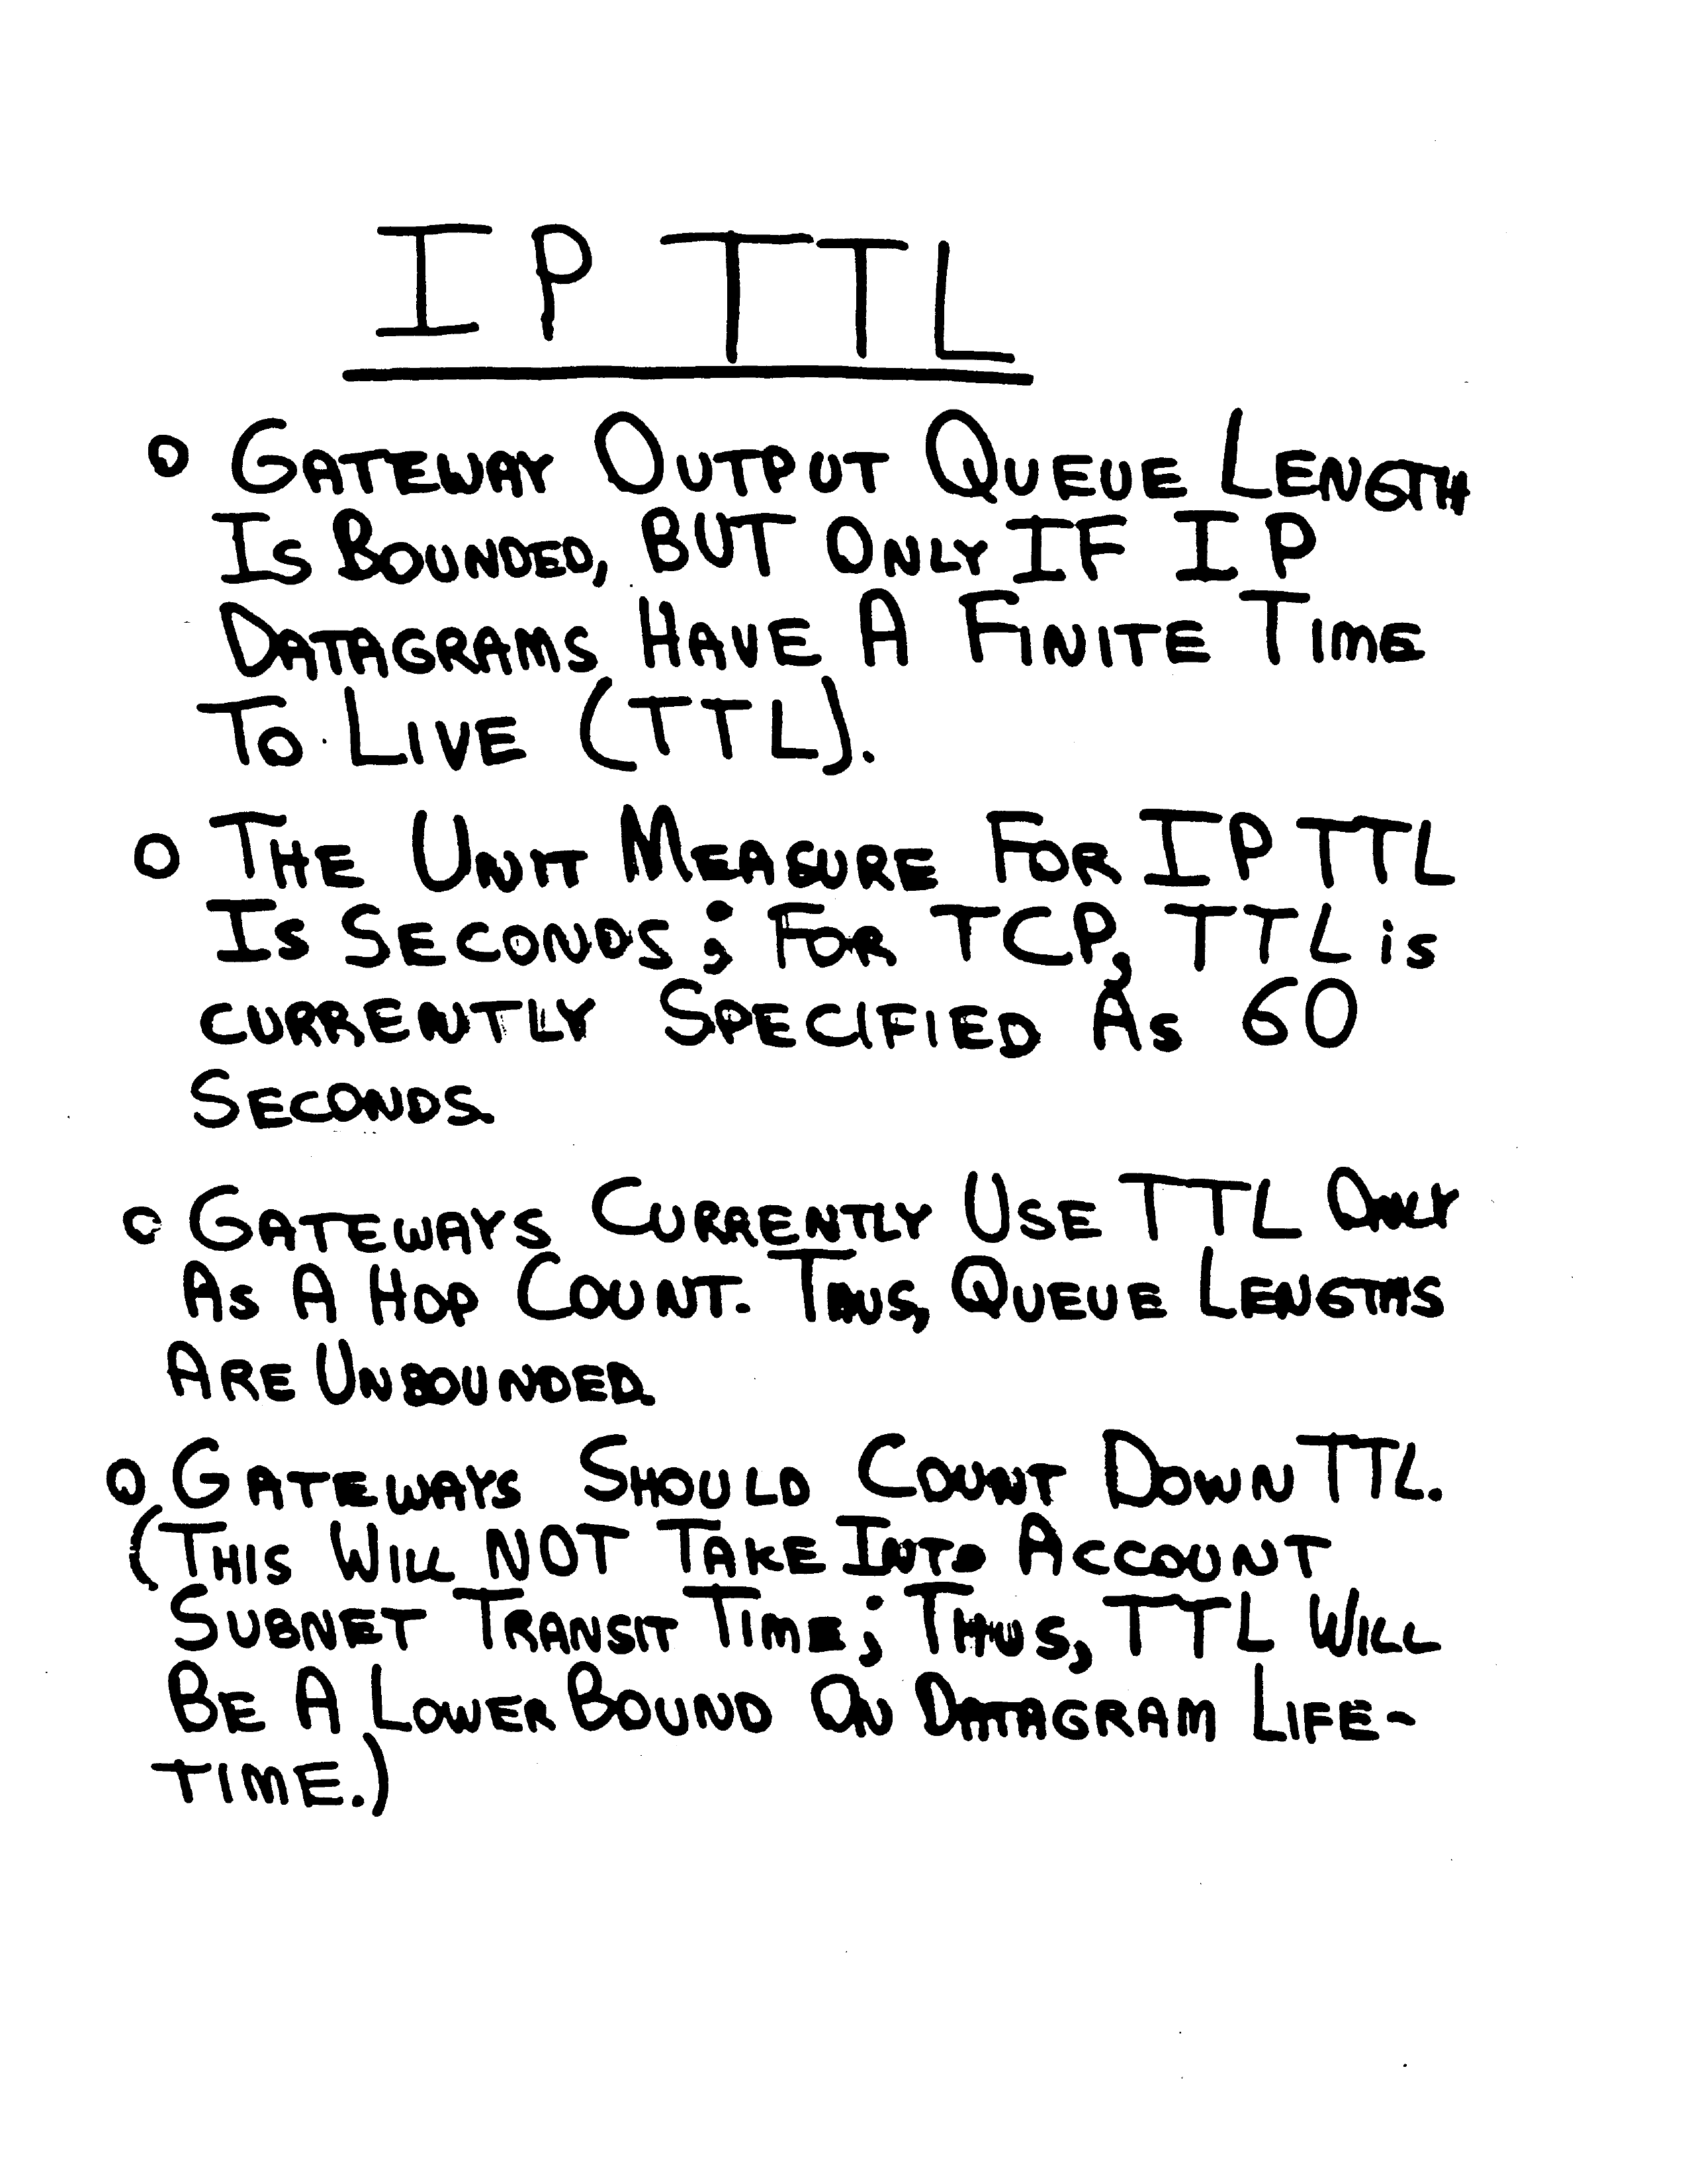 IP TTL
o GATEWAY OUTPUT QUEUE LENGTH
IS BOUNDED, BUT ONLY IF IP
DATAGRAMS HAVE A FINITE TIME
TO LIVE (TTL).
o THE UNIT MEASURE FOR IP TTL
IS SECONDS; FOR TCP, TTL is
CURRENTLY SPECIFIED AS 60
SECONDS.
o GATEWAYS CURRENTLY USE TTL ONLY
AS A HOP COUNT. THUS, QUEUE LENGTHS
ARE UNBOUNDED.
o GATEWAYS SHOULD COUNT DOWN TTL.
(THIS WILL NOT TAKE INTO ACCOUNT
SUBNET TRANSIT TIME; THUS, TTL WILL
BE A LOWER BOUND ON DATAGRAM LIFE-
TIME.)